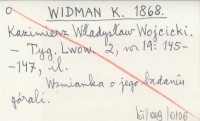 O WIDMAN K. 1868.
Kazimierz Władysław Wojcicki.
— Tyg. Lwow. 2, nr 19: 145-
-147, il.
Wzmianka o jego badaniu
górali.